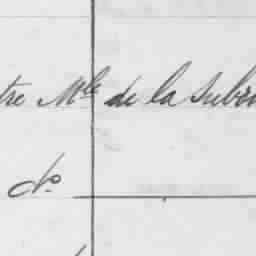 tre Mle de la Subr
No.